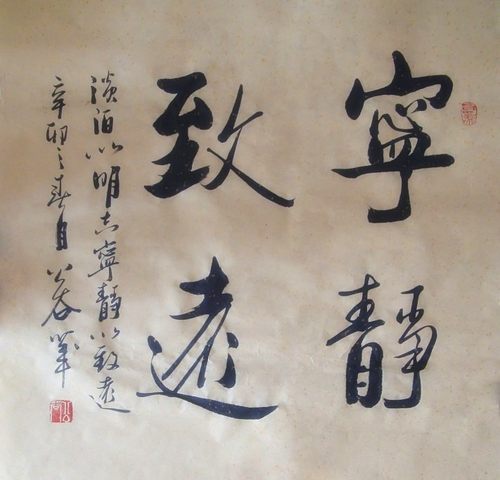 寧靜
致遠
淡泊以明志寧靜以致遠
辛卯之春月筆